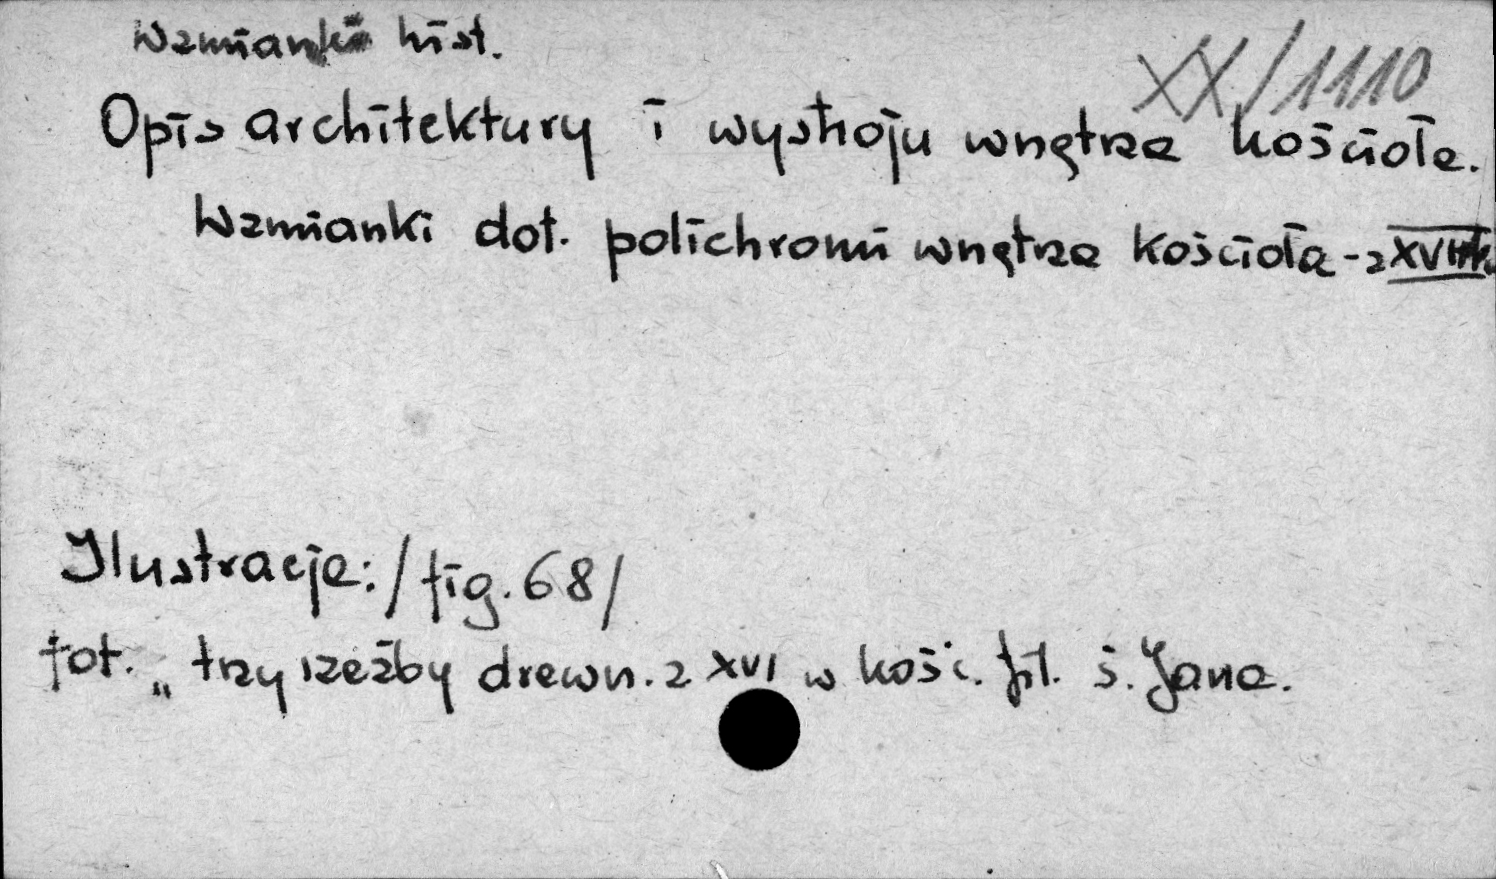 Wzmianki hist.
XX/1110
Opis architektury i wystroju wnętrza kościoła.
Wzmianki dot. polichromii wnętrza kościoła - z XVIII w.
Ilustracje: /fig. 68/
fot. „trzy rzeźby drewn. z XVI w kośc. fil. ś. Jana.